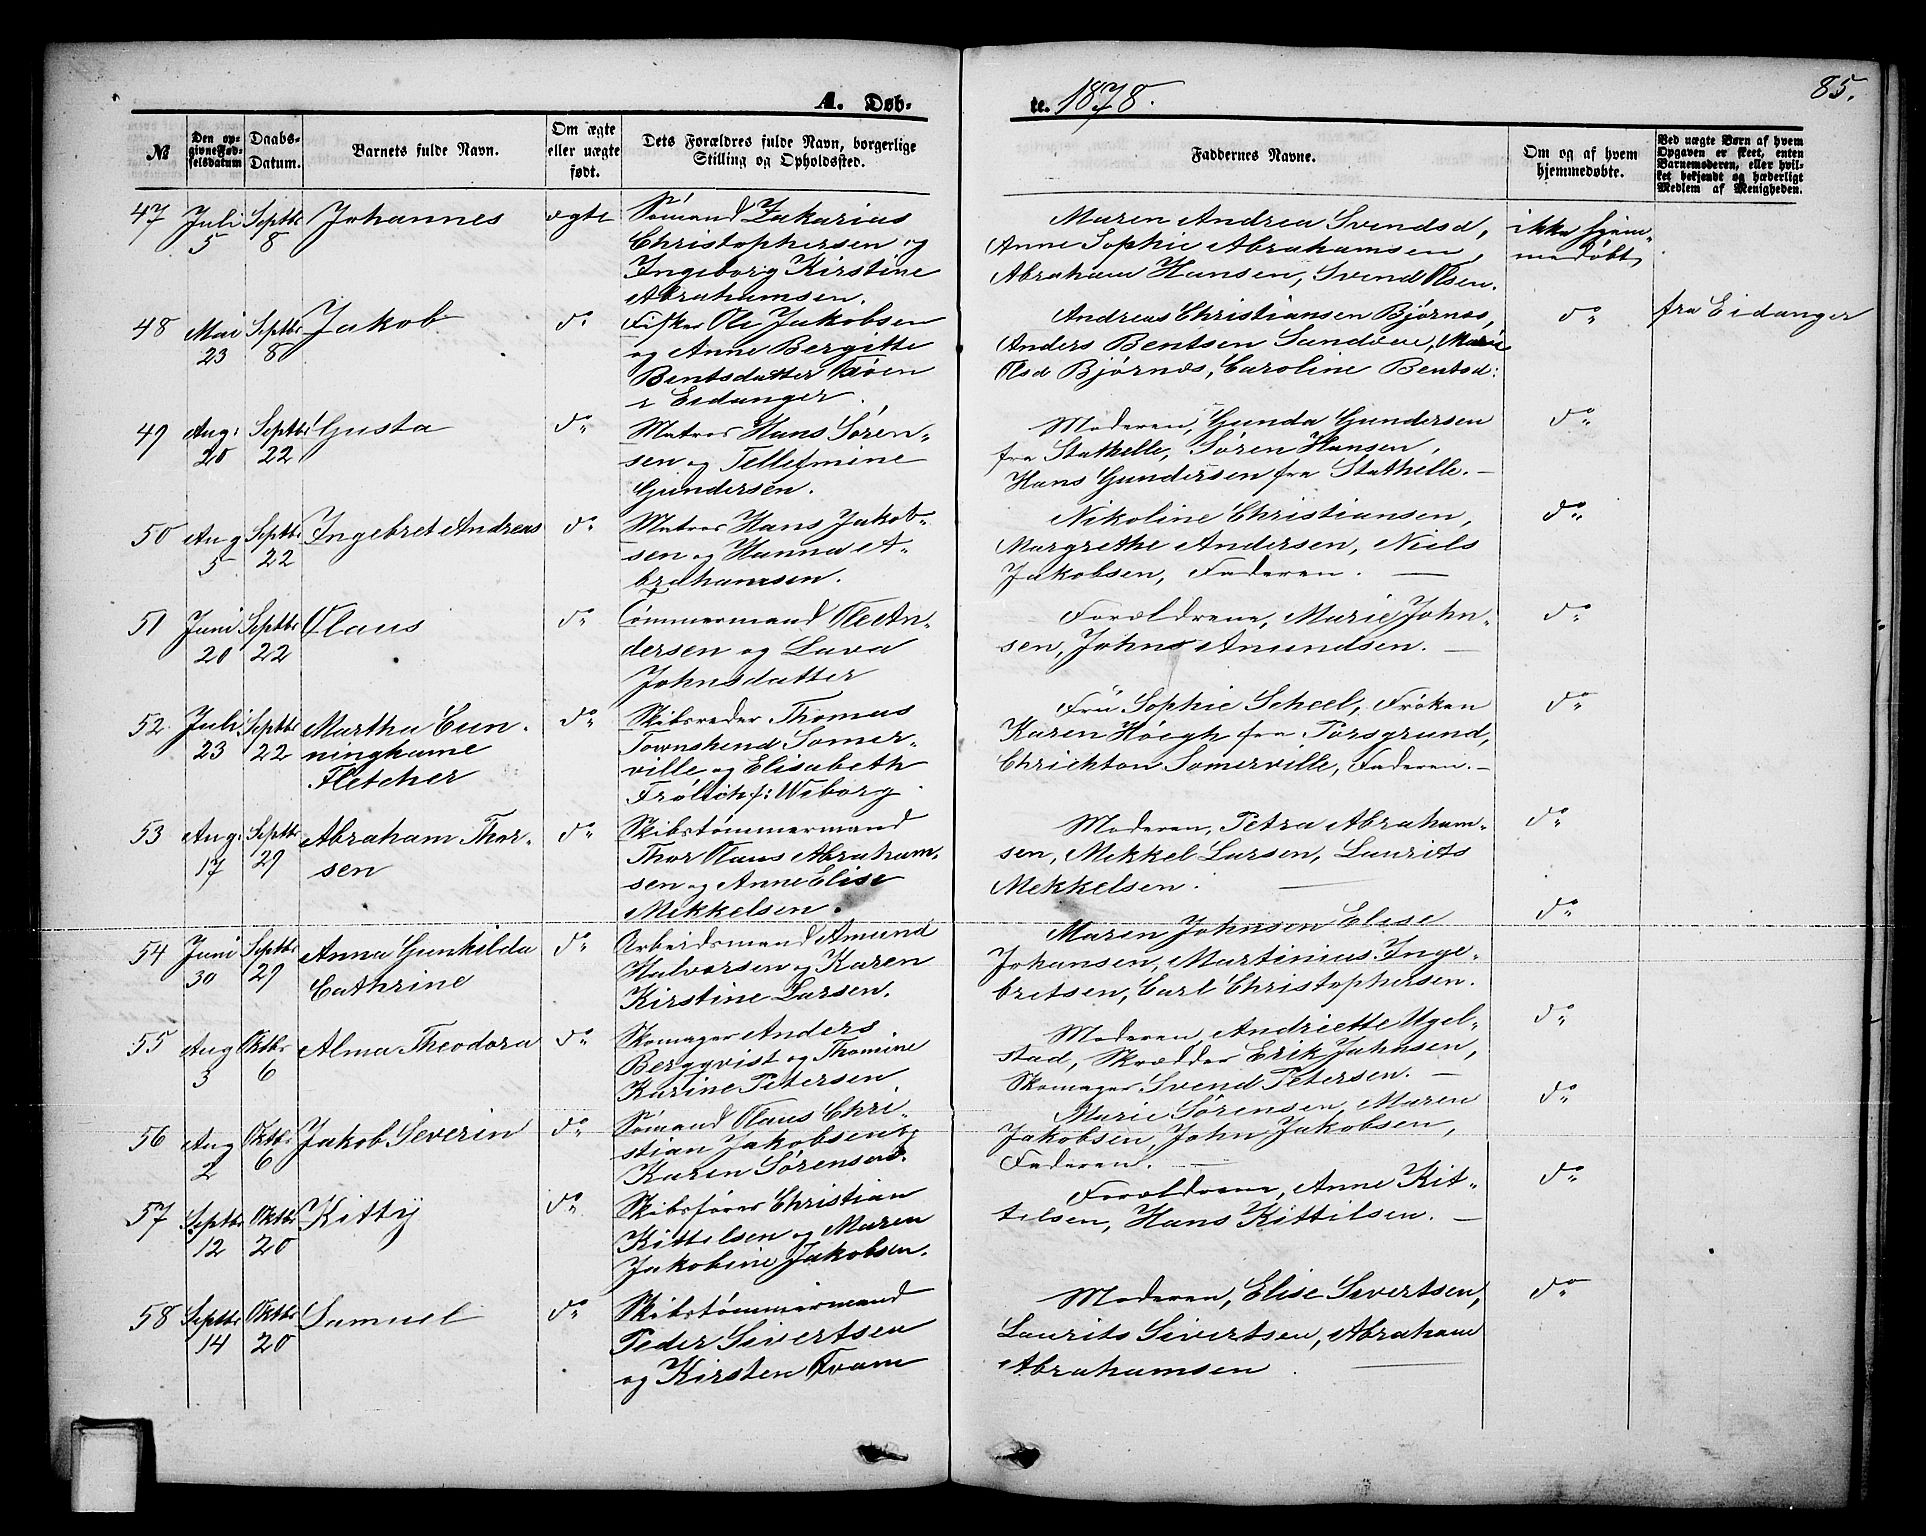 A. Døb-
te. 1878.
85.
№
Den op-
givne Fød-
selsdatum
Daabs-
Datum.
Barnets fulde Navn.
Om ægte
eller uægte
født.
Dets Forældres fulde Navn, borgerlige
Stilling og Opholdssted.
Faddernes Navne.
Om og af hvem
hjemmedøbte.
Ved uægte Børn af hvem
Opgaven er skeet, enten
Barnemoderen, eller hvil-
ket bekjendt og hæderligt
Medlem af Menigheden.
47
Juli
5
Septbr
8
Johannes
ægte
Sømand Zakarias
Christophersen og
Ingeborg Kirstine
Abrahamsen.
Maren Andrea Svendsd,
Anne Sophie Abrahamsen,
Abraham Hansen, Svend Olsen.
ikke hjem-
medøbt,
48
Mai
23
Septbr
8
Jakob
do
Fisker Ole Jakobsen
og Anne Bergitte
Bentsdatter
i Eidanger.
Andreas Christiansen Bjørnæs,
Anders Bentsen Sandøen, Marie
Olsd Bjørnæs, Caroline Bentsd:
do
fra Eidanger
49
Aug:
20
Septbr
22
Gusta
do
Matros Hans Søren-
sen og Tellefmine
Gundersen.
Moderen, Gunda Gundersen
fra Stathelle, Søren Hansen,
Hans Gundersen fra Stathelle. —
do
50
Aug
5
Septbr
22
Ingebret Andreas
do
Matros Hans Jakob-
sen og Hanna A-
brahamsen.
Nikoline Christiansen,
Margrethe Andersen, Niels
Jakobsen, Faderen. —
do
51
Juni
20
Septbr
22
Olaus
do
Tømmermand Ole An-
dersen og Lava
Johnsdatter
Forældrene, Marie John-
sen, Johns Amundsen. —
do
52
Juli
23
Septbr
22
Martha Cun-
ninghame
Fletcher
do
Skibsreder Thomas
Townshend Somer-
ville og Elisabeth
Frølich f: Wiborg
Frü Sophie Scheel, Frøken
Karen Høegh fra Porsgrund,
Chrichton Somerville, Faderen. —
do
53
Aug:
17
Septbr
29
Abraham Thor-
sen
do
Skibstømmermand
Thor Olaus Abraham-
sen og Anne Elise
Mekkelsen.
Moderen, Petra Abraham-
sen, Mekkel Larsen, Laurits
Mekkelsen. —
do
54
Juni
30
Septbr
29
Anna Gunhilda
Cathrine
do
Arbeidsmand Amund
Halvorsen og Karen
Kirstine Larsen.
Maren Johnsen Elise
Johansen, Martinius Inge-
bretsen, Carl Christophersen.
do
55
Aug
3
Oktbr
6
Alma Theodora
do
Skomager Anders
Bergqvist og Thomine
Karine Petersen.
Moderen, Andriette Ugel-
stad, Skrædder Erik Johnsen,
Skomager Svend Petersen. —
do
56
Aug
2
Oktbr
6
Jakob Severin
do
Sømand Olaus Chri-
stian Jakobsen og
Karen Sørensen.
Marie Sørensen, Maren
Jakobsen, John Jakobsen,
Faderen. —
do
57
Septbr
12
Oktbr
20
Kitty
do
Skibsfører Christian
Kittelsen og Maren
Jakobine Jakobsen.
Forældrene, Anne Kit-
telsen, Hans Kittilsen. —
do
58
Septbr
14
Oktbr
20
Samuel
do
Skibstømmermand
Peder Sivertsen
og Kirsten Tvam
Moderen, Elise Sivertsen,
Laurits Sivertsen, Abraham
Abrahamsen. —
do